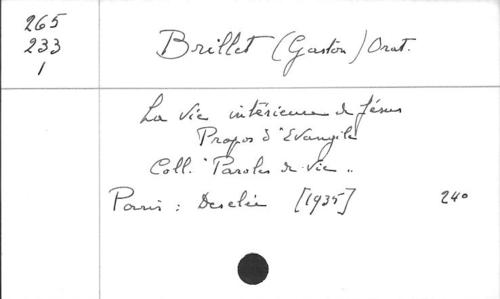 265
233
1
Brillet (Gaston) Orat.
La vie intérieure de Jésus
Propos d'Evangile
Coll. "Paroles de vie"
Paris : Desclée [1935] 240